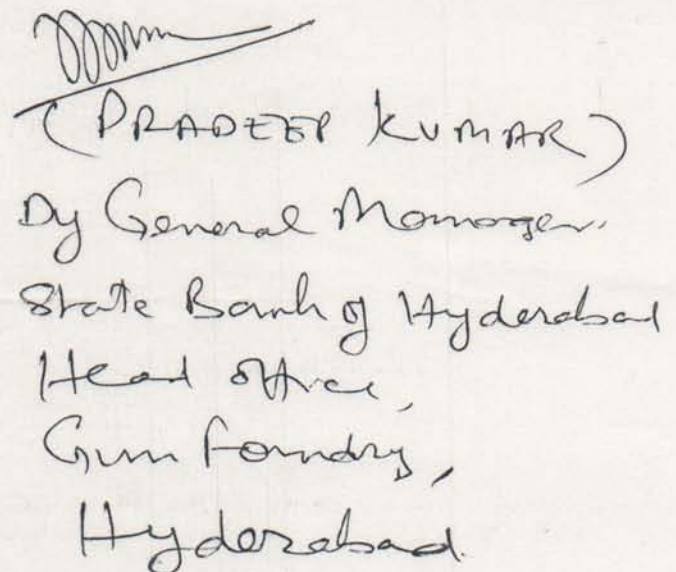 (PRADEEP KUMAR)
Dy General Manager.
State Bank of Hyderabad
Head office,
Gun Foundry,
Hyderabad.